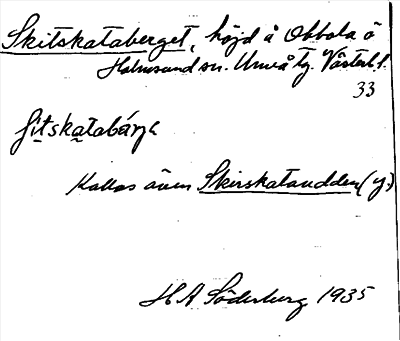 Skitskataberget, höjd å Obbola ö
Holmsund sn. Umeå tg. Västerb. l.
33
ʃitskatabárja
Kallas även Skirskataudden (y.)
H A Söderberg 1935